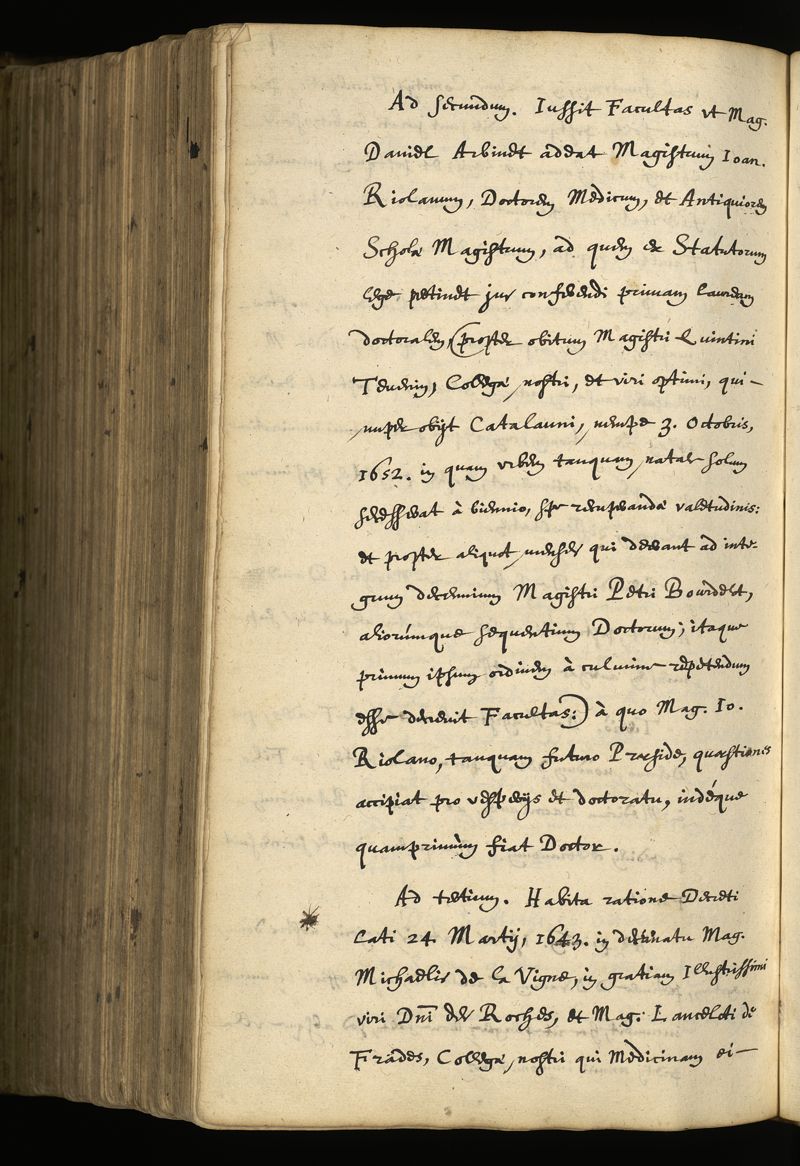 Ad secundum. Iussit Facultas vt Mag.
Daniel Arbinet adeat Magistrum Ioan.
Riolanum, Doctorem Medicum, et Antiquiorem
Scholæ Magistrum, ad quem ex Statutorum
lege pertinet jus conferendi primam lauream
doctoralem, (propter obitum Magistri Quintini
Collegæ nostri, et viri optimi, qui
nuper obijt Catalauni, nempe 3. Octobris,
1652. in quam vrbem tanquam natale solum
secesserat à biennio, spe recuperandæ valetudinis:
et propter aliquot menses qui deerant ad inte-
grum decennium Magistri Petri Bourdelot,
aliorúmque sequentium Doctorum; itaque
primum ipsum ordinem à culmine repetendum
esse decrevit Facultas:) à quo Mag. Io.
Riolano, tanquam futuro Præside, quæstiones
accipiat pro vesperijs et doctoratu, indéque
quamprimùm fiat Doctor.
Ad tertium. Habita ratione Decreti
lati 24. Martij, 1643. in decanatu Mag.
Michaelis de la Vigne, in gratiam Illustrissimi
viri Dni des Roches, et Mag. Lanceloti de
Frades, Collegæ nostri qui Medicinam ei-